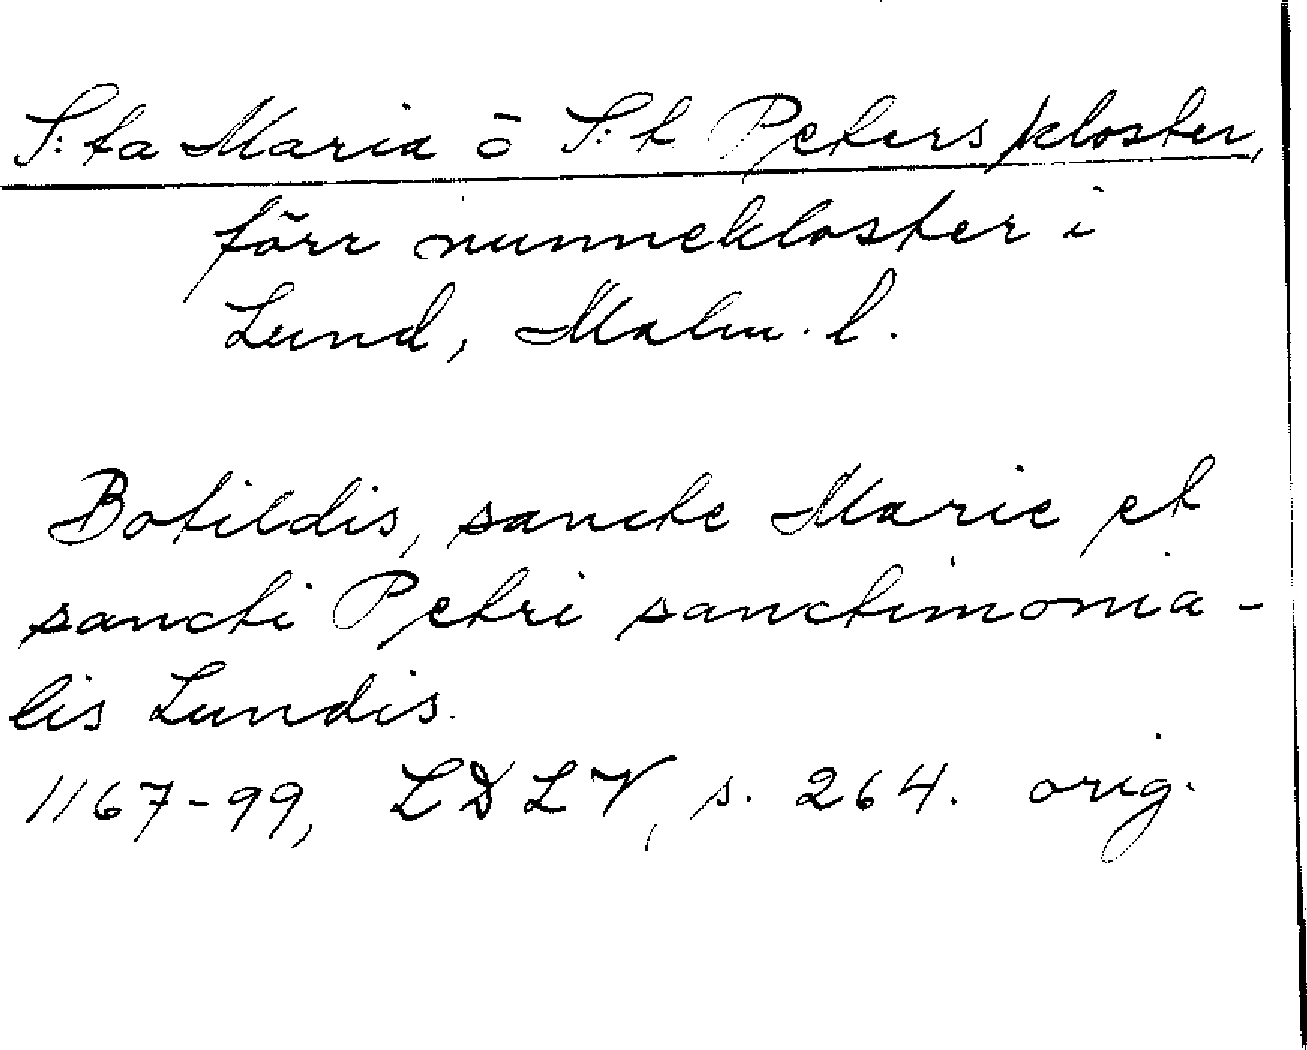 S:ta Maria o S:t Peters kloster,
förr nunnekloster i
Lund, Malm. l.
Botildis, sancte Marie et
sancti Petri sanctimonia-
lis Lundis.
1167-99, LDLV, s. 264. orig.